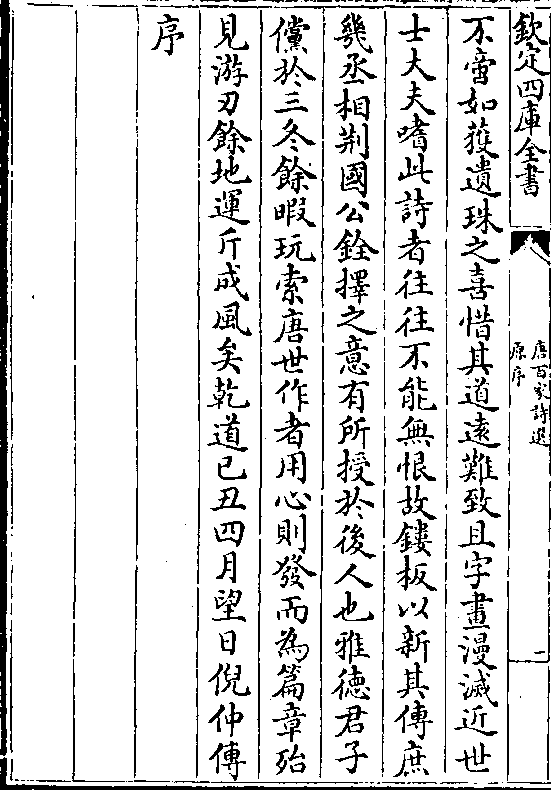 欽定四庫全書
唐百家詩選
原序
一
不啻如獲遺珠之喜惜其道遠難致且字畫漫滅近世
士大夫嗜此詩者往往不能無恨故鏤板以新其傳庶
幾丞相荆國公銓擇之意有所授於後人也雅徳君子
儻於三冬餘暇玩索唐世作者用心則發而為篇章殆
見游刃餘地運斤成風矣乾道已丑四月望日倪仲傳
序